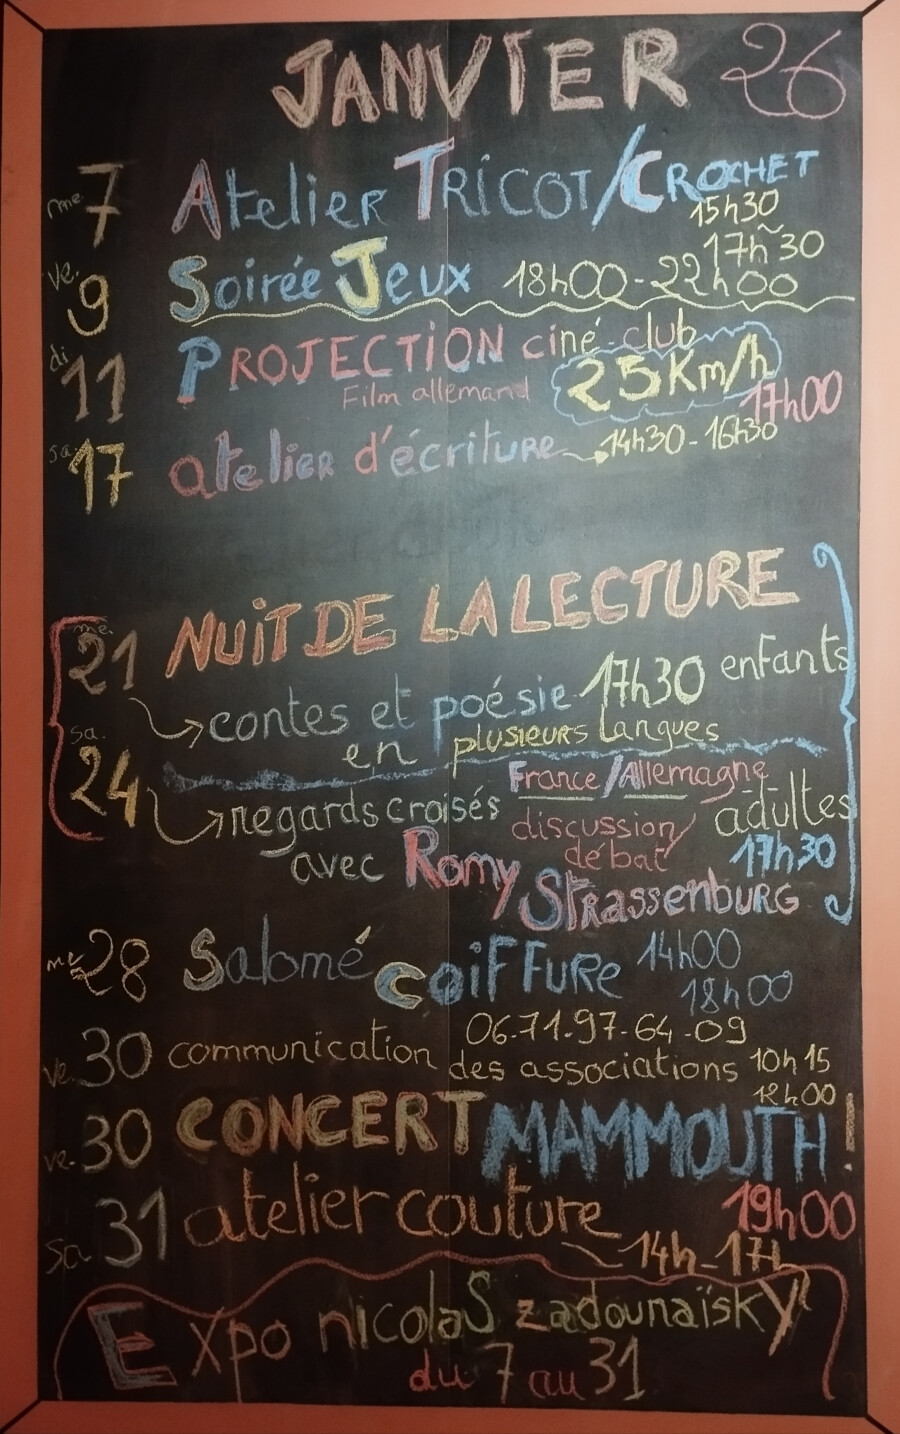 JANVIER 26
me. 7 Atelier TRICOT/CROCHET
15h30
17h30
ve. 9 Soirée Jeux 18h00-22h00
di 11 PROJECTION ciné-club
Film allemand 25Km/h
17h00
sa. 17 atelier d'écriture 14h30-16h30
NUIT DE LA LECTURE
me. 21
contes et poésie 17h30 enfants
en plusieurs langues
sa. 24
France/Allemagne
regards croisés adultes
discussion/
débat 17h30
avec Romy
Strassenburg
me 28 Salomé Coiffure 14h00
18h00
06-71-97-64-09
ve. 30 communication des associations 10h15
12h00
ve. 30 CONCERT MAMMOUTH!
19h00
sa. 31 atelier couture
14h-17h
Expo nicolaS zadounaïskY
du 7 au 31